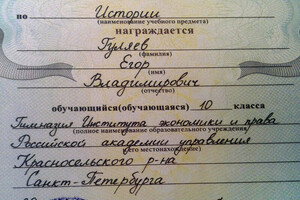 по Истории
(наименование учебного предмета)
награждается
Гуляев
(фамилия)
Егор
(имя)
Владимирович
(отчество)
обучающийся(обучающаяся) 10 класса
Гимназия Института экономики и права
(полное наименование образовательного учреждения)
Российской академии управления
его местонахождение)
Красносельского р-на
Санкт-Петербурга